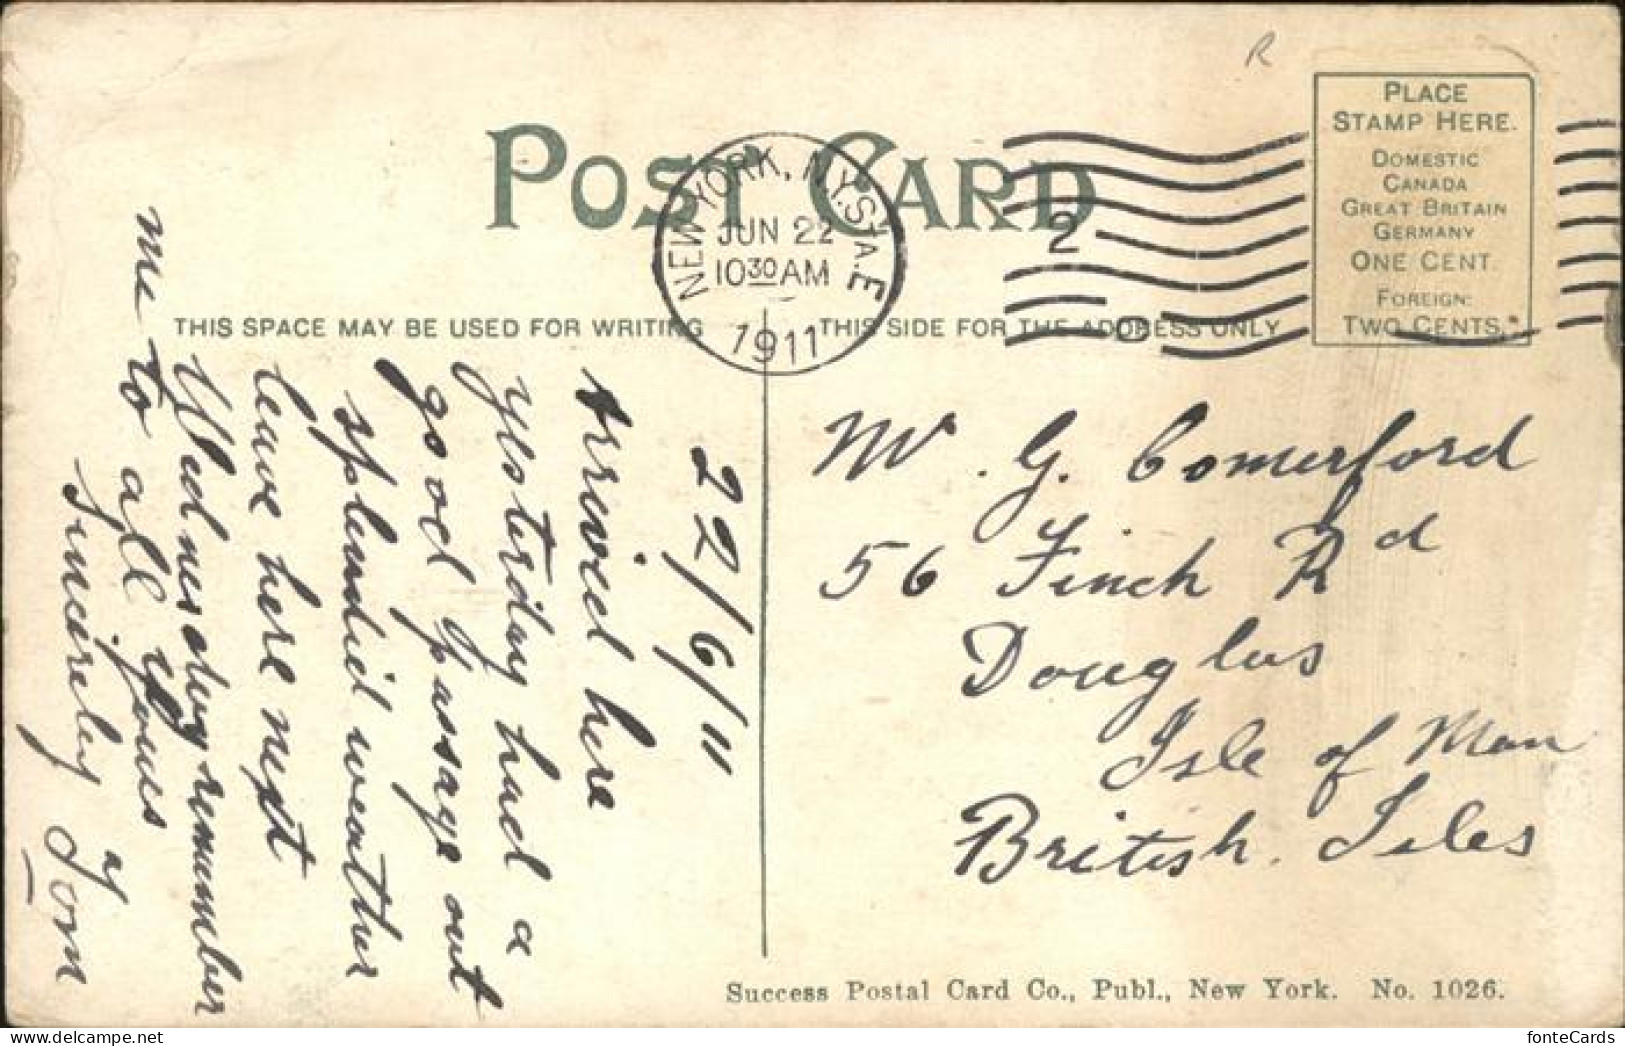 R
PLACE
STAMP HERE.
DOMESTIC
CANADA
GREAT BRITAIN
GERMANY
ONE CENT.
FOREIGN:
TWO CENTS.
POST CARD
NEW YORK, N.Y. STA. E
JUN 22
10 30 AM
1911
2
THIS SPACE MAY BE USED FOR WRITING
THIS SIDE FOR THE ADDRESS ONLY
22/6/11
Arrived here
Yesterday had a
good passage out
splendid weather
leave here next
Wednesday remember
me to all yours
Sincerely
Tom
Mr. G. Comerford
56 Finch Rd
Douglas
Isle of Man
British. Isles
Success Postal Card Co., Publ., New York. No. 1026.
fonteCards